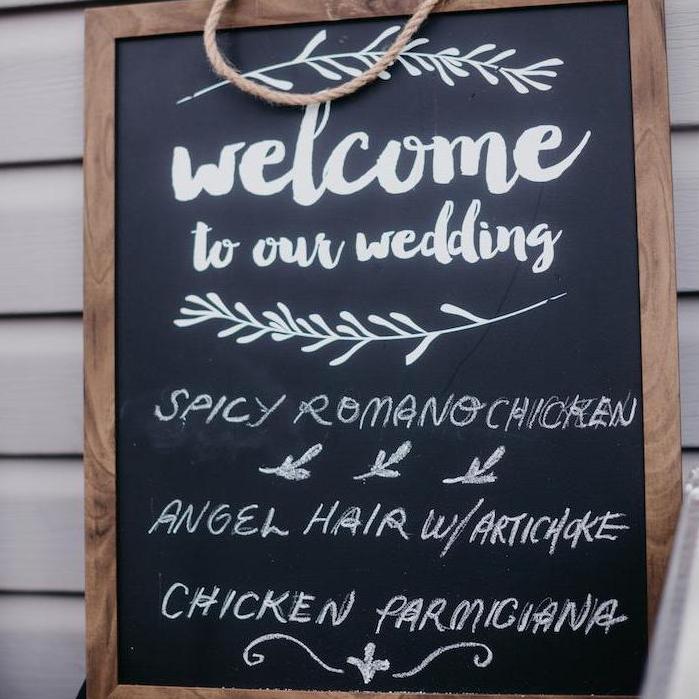 welcome
to our wedding
SPICY ROMANO CHICKEN
ANGEL HAIR W/ ARTICHOKE
CHICKEN PARMIGIANA